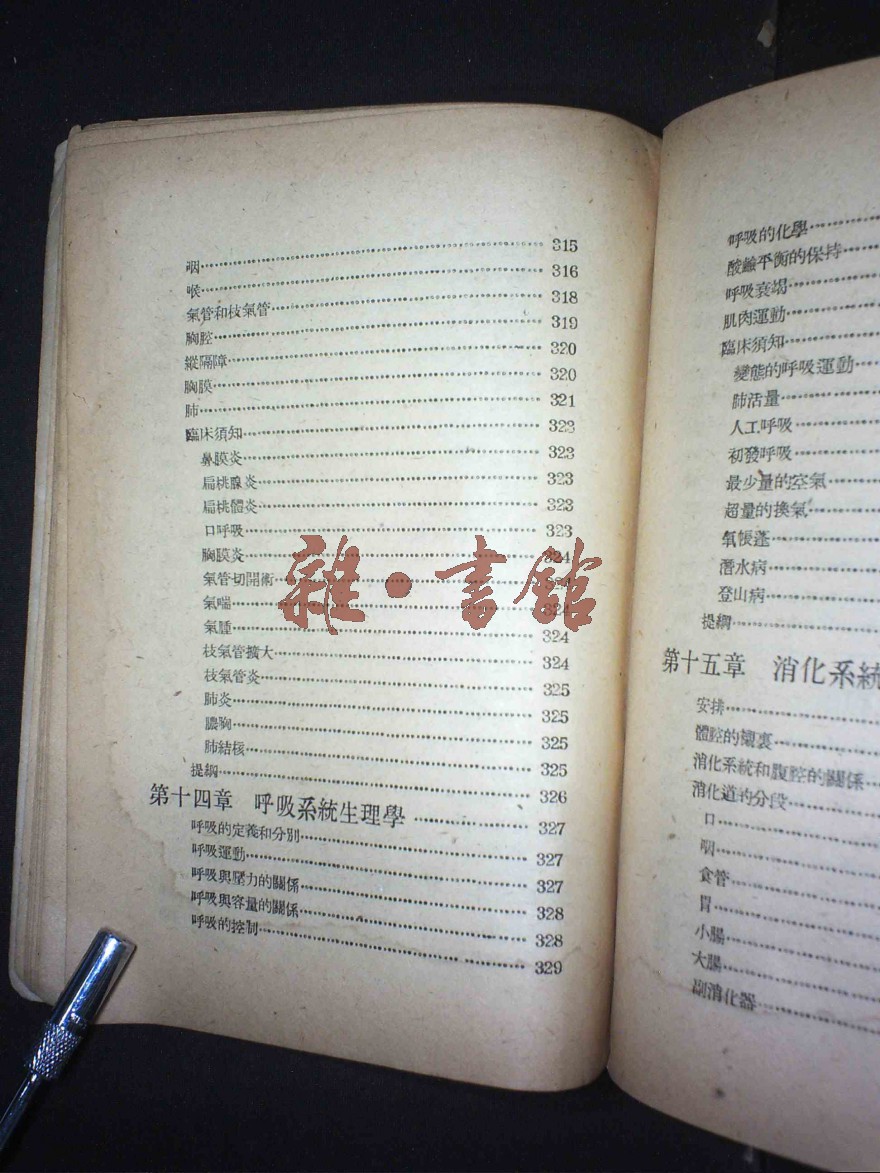 咽 315
喉 316
氣管和枝氣管 318
胸腔 319
縱隔障 320
胸膜 320
肺 321
臨床須知 323
鼻膜炎 323
扁桃腺炎 323
扁桃體炎 323
口呼吸 323
胸膜炎 324
氣管切開術 324
氣喘 324
氣腫 324
枝氣管擴大 324
枝氣管炎 325
肺炎 325
膿胸 325
肺結核 325
提綱 326
第十四章 呼吸系統生理學 327
呼吸的定義和分別 327
呼吸運動 327
呼吸與壓力的關係 328
呼吸與容量的關係 328
呼吸的控制 329
雜·書館
呼吸的化學
酸鹼平衡的保持
呼吸衰竭
肌肉運動
臨床須知
變態的呼吸運動
肺活量
人工呼吸
初發呼吸
最少量的空氣
超量的換氣
氧帳蓬
潛水病
登山病
提綱
第十五章 消化系統
安排
體腔的襯裏
消化系統和腹腔的關係
消化道的分段
口
咽
食管
胃
小腸
大腸
副消化器